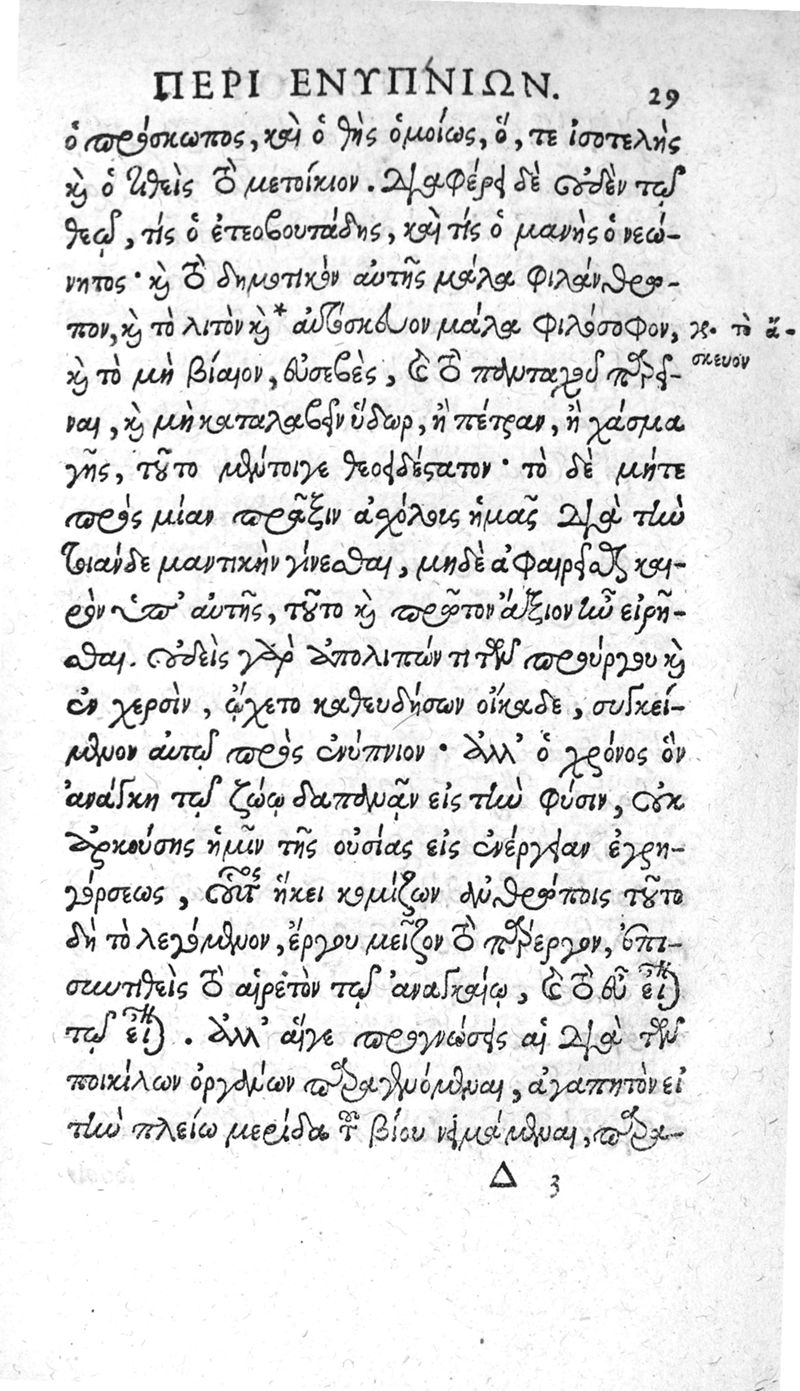 ΠΕΡΙ ΕΝΥΠΝΙΩΝ. 29
ὁ πρόσκωπος, καὶ ὁ θὴς ὁμοίως, ὅ, τε ἰσοτελὴς
καὶ ὁ τιθεὶς τὸ μετοίκιον. διαφέρει δὲ οὐδὲν τῷ
θεῷ, τίς ὁ ἐτεοβουτάδης, καὶ τίς ὁ μανὴς ὁ νεώ-
νητος· καὶ τὸ δημοτικὸν αὐτῆς μάλα φιλάνθρω-
πον, καὶ τὸ λιτὸν καὶ * αὐτόσκευον μάλα φιλόσοφον,
γρ. τὸ ἄ-
σκευον
καὶ τὸ μὴ βίαιον, εὐσεβὲς, καὶ τὸ πολυταχοῦ παρεῖ-
ναι, καὶ μὴ καταλαβεῖν ὕδωρ, ἢ πέτραν, ἢ χάσμα
γῆς, τοῦτο μέντοιγε θεοειδέστατον· τὸ δὲ μήτε
πρὸς μίαν πρᾶξιν ἀχόλοις ἡμᾶς διὰ τὴν
τοιάνδε μαντικὴν γίνεσθαι, μηδὲ ἀφαιρεῖσθαι και-
ρὸν ὑπ' αὐτῆς, τοῦτο καὶ πρῶτον ἄξιον ἦν εἰρῆ-
σθαι. οὐδεὶς γὰρ ἀπολιπών τι τῶν προὔργου καὶ
ἐν χερσὶν, ᾤχετο καθευδήσων οἴκαδε, συγκεί-
μενον αὐτῷ πρὸς ἐνύπνιον· ἀλλ' ὁ χρόνος ὃν
ἀνάγκη τῷ ζώῳ δαπανᾶν εἰς τὴν φύσιν, οὐκ
ἀρκούσης ἡμῖν τῆς οὐσίας εἰς ἐνέργειαν ἐγρη-
γόρσεως, οὗτος ἥκει κομίζων ἀνθρώποις τοῦτο
δὴ τὸ λεγόμενον, ἔργου μεῖζον τὸ πάρεργον, ἐπι-
συντιθεὶς τὸ αἱρετὸν τῷ ἀναγκαίῳ, καὶ τὸ εὖ εἶναι
τῷ εἶναι. ἀλλ' αἵγε προγνώσεις αἱ διὰ τῶν
ποικίλων ὀργάνων παραγενόμεναι, ἀγαπητὸν εἰ
τὴν πλείω μερίδα τοῦ βίου νειμάμεναι, παρα-
Δ 3